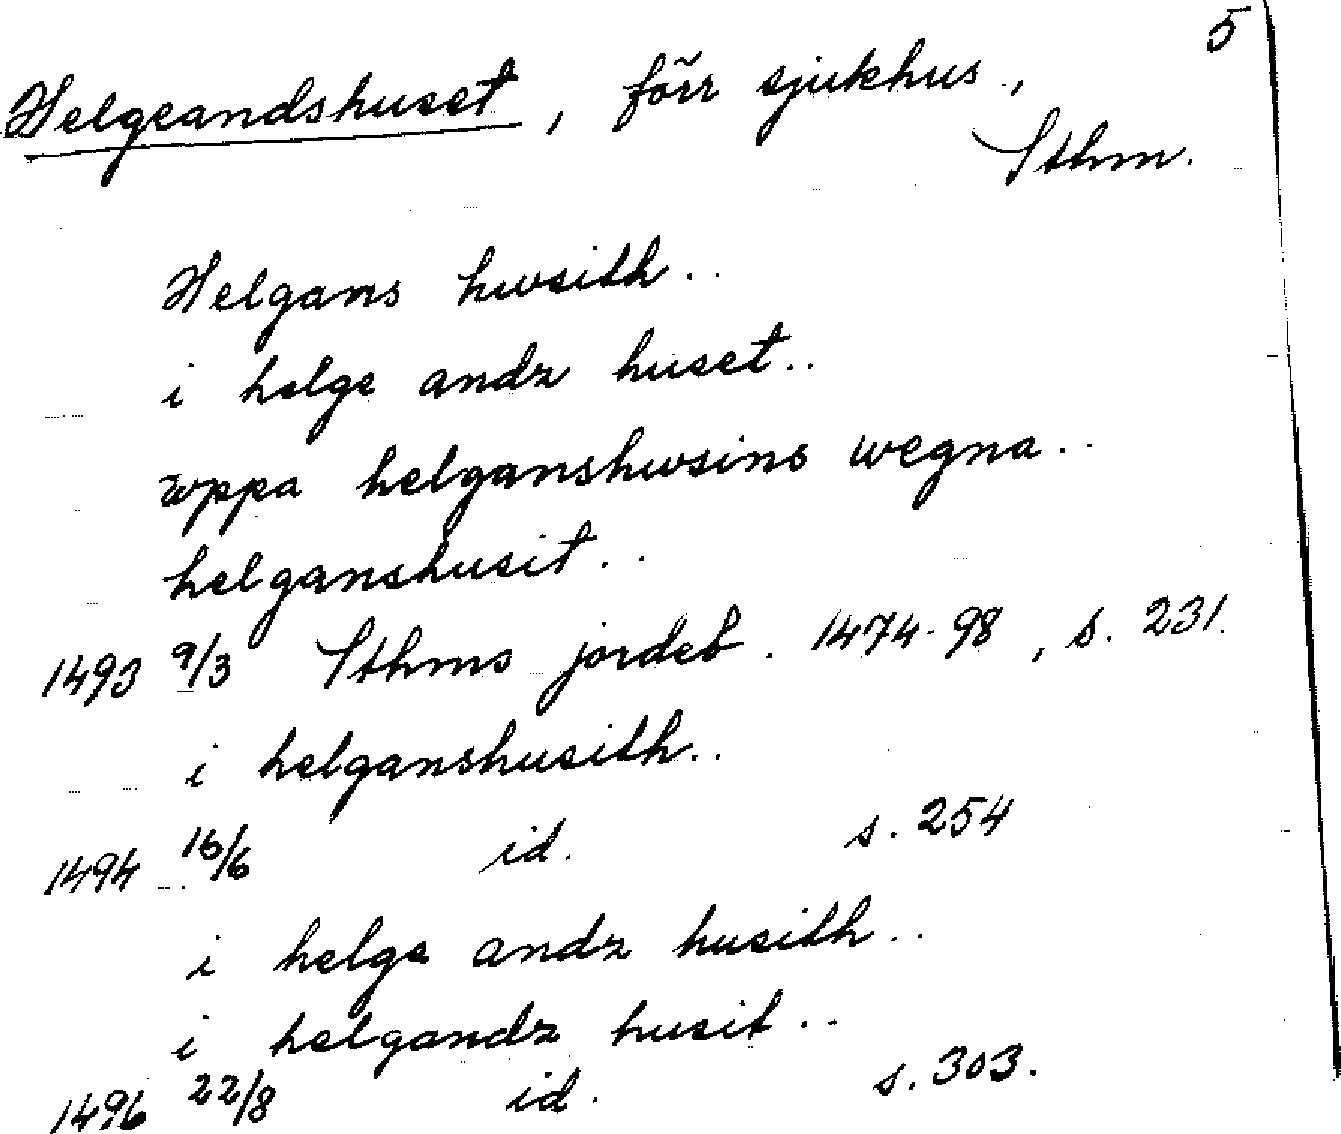 5
Helgeandshuset, förr sjukhus.,
Sthm.
Helgans hwsith..
i helge andz huset..
wppa helganshwsins wegna..
helganshusit..
1493 9/3 Sthms jordeb. 1474-98, s. 231.
i helganshusith..
1494 16/6 id. s. 254
i helge andz husith..
i helgandz husit..
1496 22/8 id. s. 303.